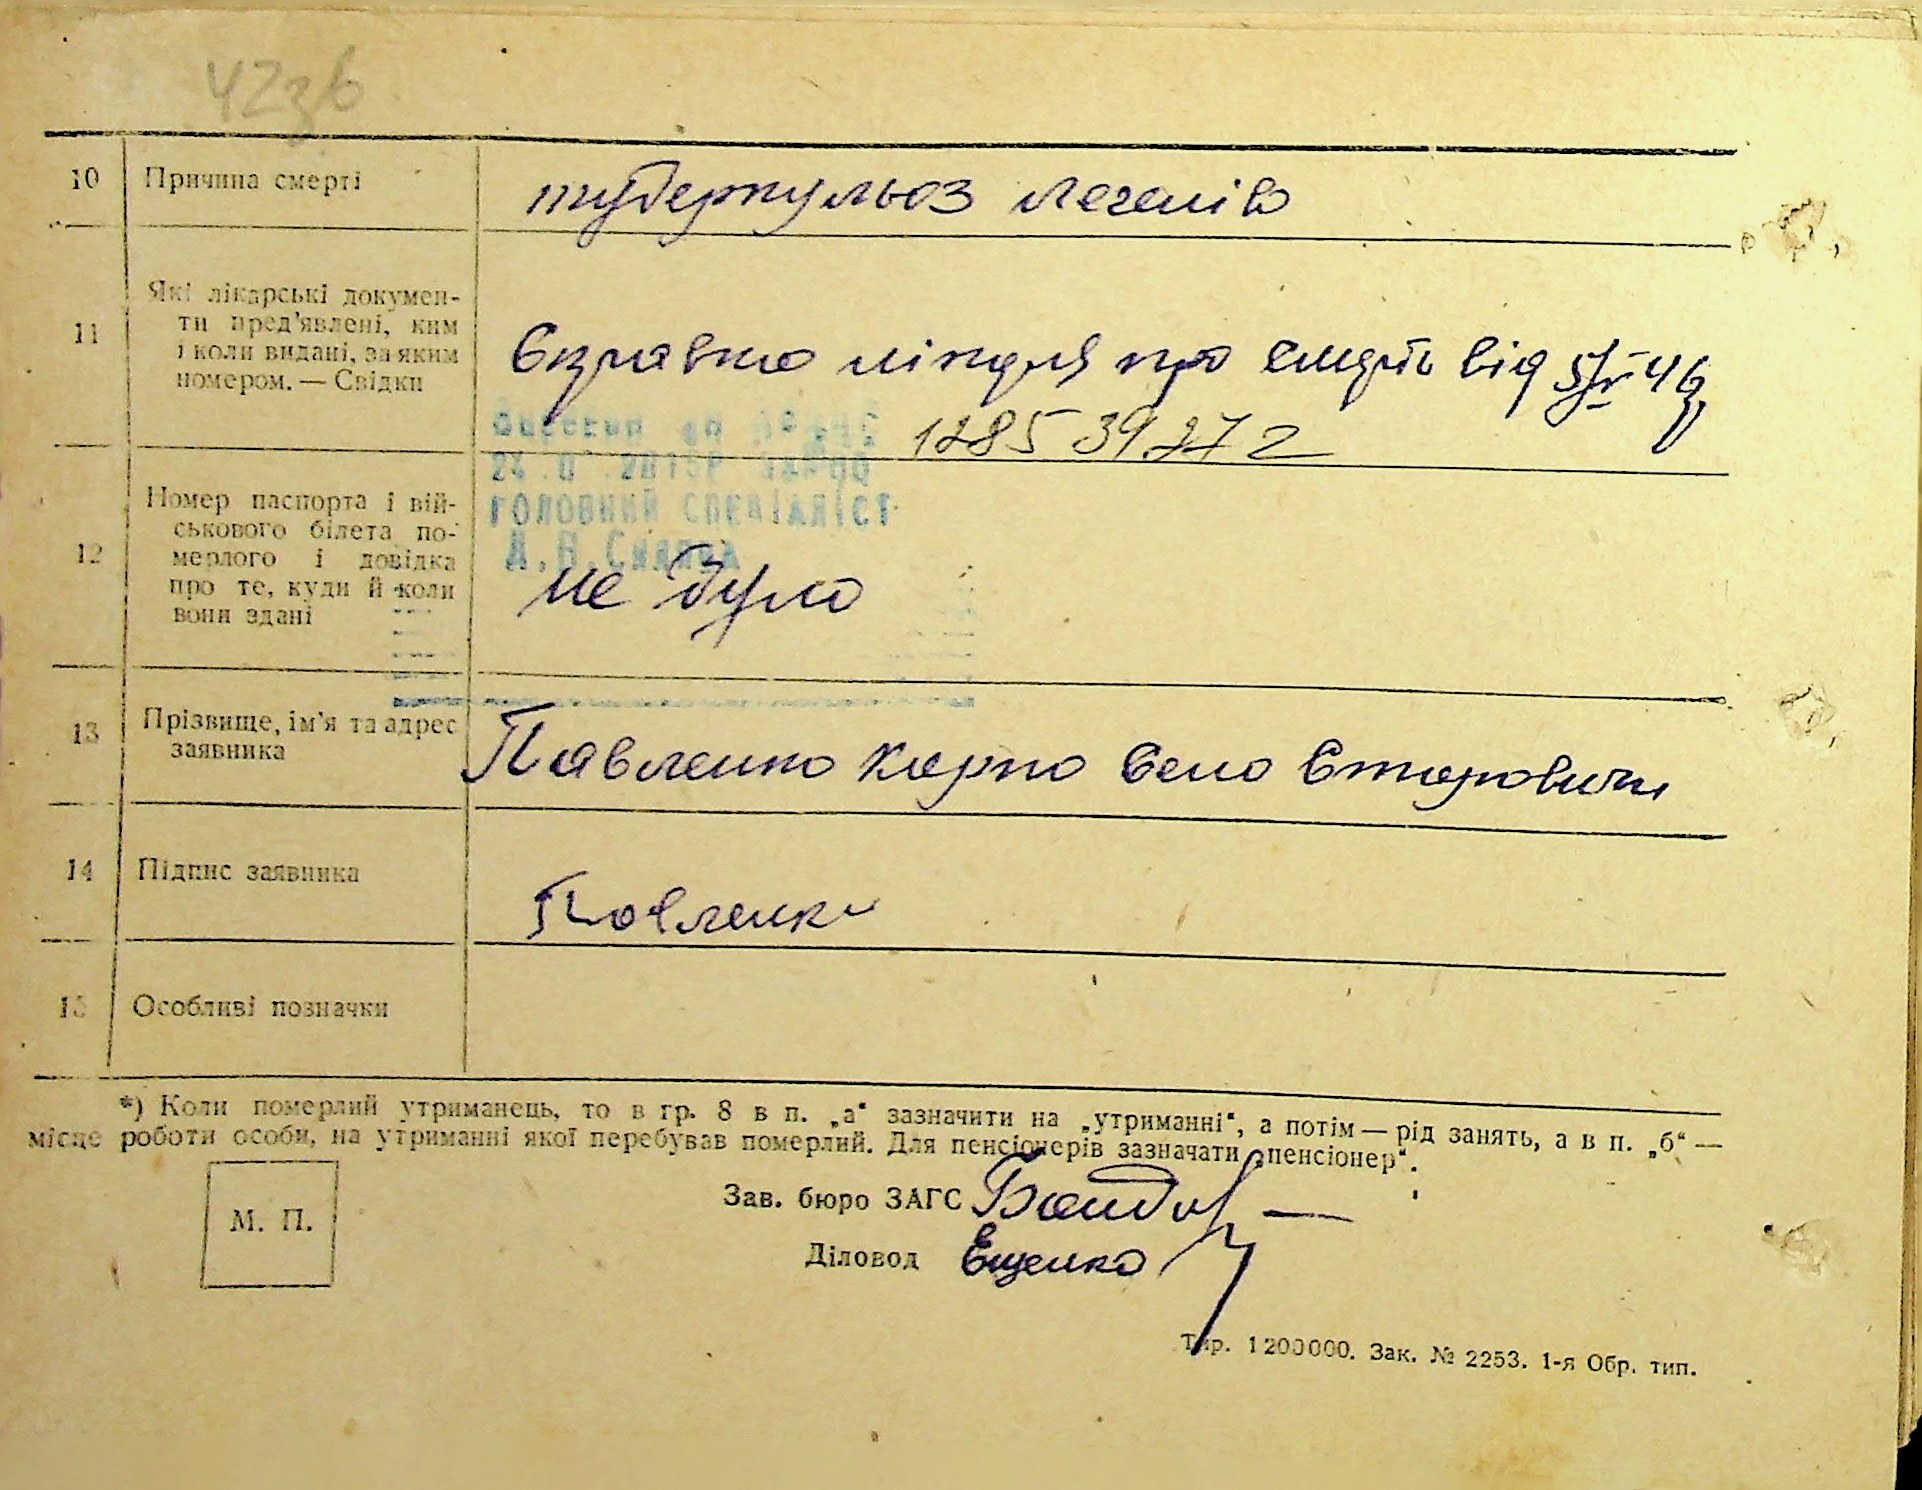 42зв
10 Причина смерті туберкульоз легенів
11 Які лікарські докумен-
ти пред'явлені, ким
і коли видані, за яким
номером. — Свідки
Справка лікаря про смерть від
1285 39272
ГОЛОВНИЙ СПЕЦІАЛІСТ
12 Номер паспорта і вій-
ськового білета по-
мерлого і довідка
про те, куди й коли
вони здані
не було
13 Прізвище, ім'я та адрес
заявника
Павленко Карпо село
14 Підпис заявника Павленко
15 Особливі позначки
*) Коли померлий утриманець, то в гр. 8 в п. „а“ зазначити на „утриманні“, а потім — рід занять, а в п. „б“ —
місце роботи особи, на утриманні якої перебував померлий. Для пенсіонерів зазначати „пенсіонер“.
М. П.
Зав. бюро ЗАГС
Діловод Ещенко
Тир. 1200000. Зак. № 2253. 1-я Обр. тип.